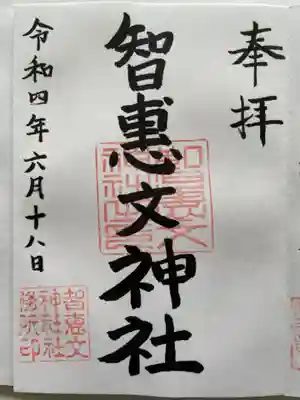 奉拝
智惠文神社
令和四年六月十八日
智恵文
神社社
務所印